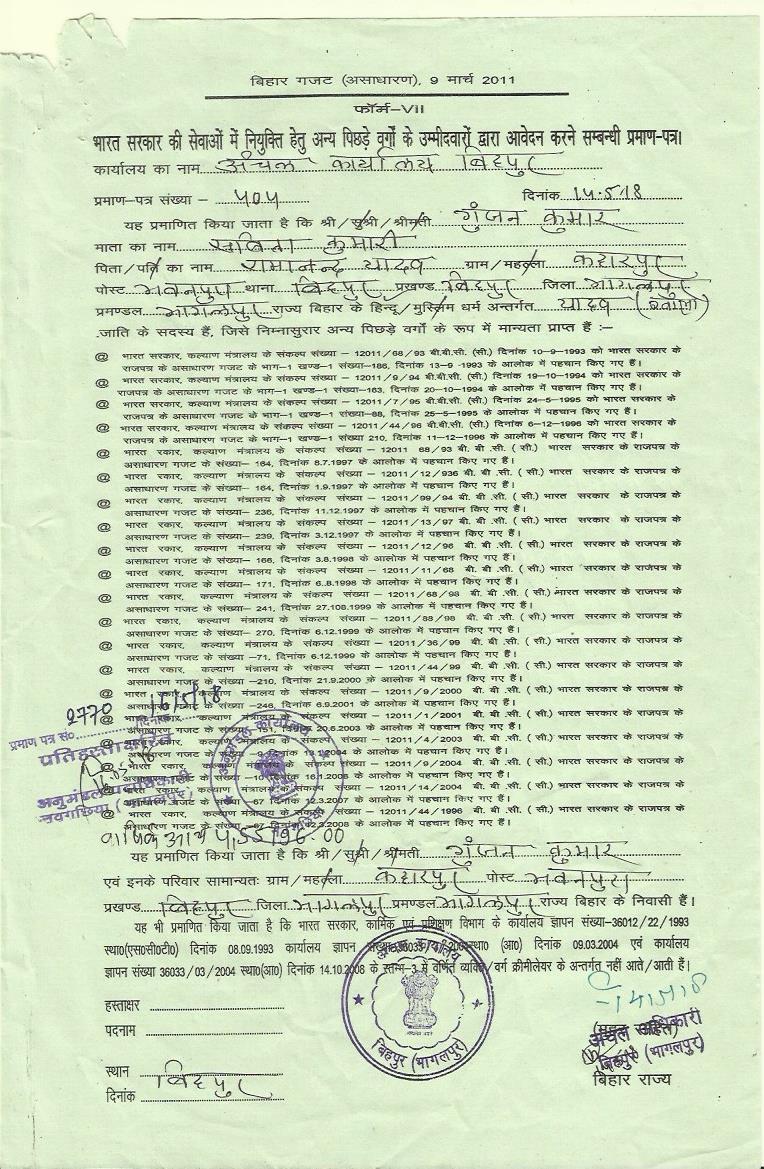 बिहार गजट (असाधारण), 9 मार्च 2011
फॉर्म–VII
भारत सरकार की सेवाओं में नियुक्ति हेतु अन्य पिछड़े वर्गों के उम्मीदवारों द्वारा आवेदन करने सम्बन्धी प्रमाण–पत्र।
कार्यालय का नाम अंचल कार्यालय बिहपुर
प्रमाण–पत्र संख्या – ५०५ दिनांक 14.5.18
यह प्रमाणित किया जाता है कि श्री/सुश्री/श्रीमती गुंजन कुमार
माता का नाम सबिता कुमारी
पिता/पति का नाम रामानन्द यादव ग्राम/महल्ला कहारपुर
पोस्ट भवनपुरा थाना बिहपुर प्रखण्ड बिहपुर जिला भागलपुर
प्रमण्डल भागलपुर राज्य बिहार के हिन्दू/मुस्लिम धर्म अन्तर्गत यादव (ग्वाला)
जाति के सदस्य हैं, जिसे निम्नासुरार अन्य पिछड़े वर्गों के रूप में मान्यता प्राप्त हैं :–
@ भारत सरकार, कल्याण मंत्रालय के संकल्प संख्या – 12011/68/93 बी.बी.सी. (सी.) दिनांक 10–9–1993 को भारत सरकार के
राजपत्र के असाधारण गजट के भाग–1 खण्ड–1 संख्या–186, दिनांक 13–9–1993 के आलोक में पहचान किए गए हैं।
@ भारत सरकार, कल्याण मंत्रालय के संकल्प संख्या – 12011/9/94 बी.बी.सी. (सी.) दिनांक 19–10–1994 को भारत सरकार के
राजपत्र के असाधारण गजट के भाग–1 खण्ड–1 संख्या–163, दिनांक 20–10–1994 के आलोक में पहचान किए गए हैं।
@ भारत सरकार, कल्याण मंत्रालय के संकल्प संख्या – 12011/7/95 बी.बी.सी. (सी.) दिनांक 24–5–1995 को भारत सरकार के
राजपत्र के असाधारण गजट के भाग–1 खण्ड–1 संख्या–88, दिनांक 25–5–1995 के आलोक में पहचान किए गए हैं।
@ भारत सरकार, कल्याण मंत्रालय के संकल्प संख्या – 12011/44/96 बी.बी.सी. (सी.) दिनांक 6–12–1996 को भारत सरकार के
राजपत्र के असाधारण गजट के भाग–1 खण्ड–1 संख्या 210, दिनांक 11–12–1996 के आलोक में पहचान किए गए हैं।
@ भारत रकार, कल्याण मंत्रालय के संकल्प संख्या – 12011 68/93 बी. बी. सी. (सी.) भारत सरकार के राजपत्र के
असाधारण गजट के संख्या– 164, दिनांक 8.7.1997 के आलोक में पहचान किए गए हैं।
@ भारत रकार, कल्याण मंत्रालय के संकल्प संख्या – 12011/12/936 बी. बी .सी. (सी.) भारत सरकार के राजपत्र के
असाधारण गजट के संख्या– 164, दिनांक 1.9.1997 के आलोक में पहचान किए गए हैं।
@ भारत रकार, कल्याण मंत्रालय के संकल्प संख्या – 12011/99/94 बी. बी. सी. (सी.) भारत सरकार के राजपत्र के
असाधारण गजट के संख्या– 236, दिनांक 11.12.1997 के आलोक में पहचान किए गए हैं।
@ भारत रकार, कल्याण मंत्रालय के संकल्प संख्या – 12011/13/97 बी. बी. सी. (सी.) भारत सरकार के राजपत्र के
असाधारण गजट के संख्या– 239, दिनांक 3.12.1997 के आलोक में पहचान किए गए हैं।
@ भारत रकार, कल्याण मंत्रालय के संकल्प संख्या – 12011/12/96 बी. बी .सी. (सी.) भारत सरकार के राजपत्र के
असाधारण गजट के संख्या– 166, दिनांक 3.8.1998 के आलोक में पहचान किए गए हैं।
@ भारत रकार, कल्याण मंत्रालय के संकल्प संख्या – 12011/11/68 बी. बी. सी. (सी.) भारत सरकार के राजपत्र के
असाधारण गजट के संख्या– 171, दिनांक 6..8.1998 के आलोक में पहचान किए गए हैं।
@ भारत रकार, कल्याण मंत्रालय के संकल्प संख्या – 12011/68/98 बी. बी. सी. (सी.) भारत सरकार के राजपत्र के
असाधारण गजट के संख्या– 241, दिनांक 27.108.1999 के आलोक में पहचान किए गए हैं।
@ भारत रकार, कल्याण मंत्रालय के संकल्प संख्या – 12011/88/98 बी. बी. सी. (सी.) भारत सरकार के राजपत्र के
असाधारण गजट के संख्या– 270, दिनांक 6.12.1999 के आलोक में पहचान किए गए हैं।
@ भारत रकार, कल्याण मंत्रालय के संकल्प संख्या – 12011/36/99 बी. बी. सी. (सी.) भारत सरकार के राजपत्र के
असाधारण गजट के संख्या –71, दिनांक 6.12.1999 के आलोक में पहचान किए गए हैं।
@ भारत रकार, कल्याण मंत्रालय के संकल्प संख्या – 12011/44/99 बी. बी. सी. (सी.) भारत सरकार के राजपत्र के
असाधारण गजट के संख्या –210, दिनांक 21.9.2000 के आलोक में पहचान किए गए हैं।
@ भारत रकार, कल्याण मंत्रालय के संकल्प संख्या – 12011/9/2000 बी. बी. सी. (सी.) भारत सरकार के राजपत्र के
असाधारण गजट के संख्या –246, दिनांक 6.9.2001 के आलोक में पहचान किए गए हैं।
@ भारत रकार, कल्याण मंत्रालय के संकल्प संख्या – 12011/1/2001 बी. बी. सी. (सी.) भारत सरकार के राजपत्र के
असाधारण गजट के संख्या –151, दिनांक 20.6.2003 के आलोक में पहचान किए गए हैं।
@ भारत रकार, कल्याण मंत्रालय के संकल्प संख्या – 12011/4/2003 बी. बी. सी. (सी.) भारत सरकार के राजपत्र के
असाधारण गजट के संख्या –9 के आलोक में पहचान किए गए हैं।
@ भारत रकार, कल्याण मंत्रालय के संकल्प संख्या – 12011/9/2004 बी. बी. सी. (सी.) भारत सरकार के राजपत्र के
असाधारण गजट के संख्या –10 दिनांक 16.1.2006 के आलोक में पहचान किए गए हैं।
@ भारत रकार, कल्याण मंत्रालय के संकल्प संख्या – 12011/14/2004 बी. बी. सी. (सी.) भारत सरकार के राजपत्र के
असाधारण गजट के संख्या –67 दिनांक 12.3.2007 के आलोक में पहचान किए गए हैं।
@ भारत रकार, कल्याण मंत्रालय के संकल्प संख्या – 12011/44/1996 बी. बी. सी. (सी.) भारत सरकार के राजपत्र के
असाधारण गजट के संख्या –67 दिनांक 12.3.2008 के आलोक में पहचान किए गए हैं।
प्रमाण पत्र सं० 2770 दिनांक
प्रतिहस्ताक्षरित
अनुमंडल पदाधिकारी
नवगछिया (भागलपुर)
अनुमंडल कार्यालय
वार्षिक आय 4,55196.00
यह प्रमाणित किया जाता है कि श्री/सुश्री/श्रीमती गुंजन कुमार
एवं इनके परिवार सामान्यतः ग्राम/महल्ला कहारपुर पोस्ट भवनपुरा
प्रखण्ड बिहपुर जिला भागलपुर प्रमण्डल भागलपुर राज्य बिहार के निवासी हैं।
यह भी प्रमाणित किया जाता है कि भारत सरकार, कार्मिक एवं प्रशिक्षण विभाग के कार्यालय ज्ञापन संख्या–36012/22/1993
स्था०(एस०सी०टी०) दिनांक 08.09.1993 कार्यालय ज्ञापन संख्या–36033/3/2004–स्था० (आ०) दिनांक 09.03.2004 एवं कार्यालय
ज्ञापन संख्या 36033/03/2004 स्था०(आ०) दिनांक 14.10.2008 के स्तम्भ–3 में वर्णित व्यक्ति/वर्ग क्रीमीलेयर के अन्तर्गत नहीं आते/आती हैं।
हस्ताक्षर
पदनाम
स्थान बिहपुर
दिनांक
अंचल कार्यालय
बिहपुर (भागलपुर)
अंचल अधिकारी
बिहपुर (भागलपुर)
बिहार राज्य